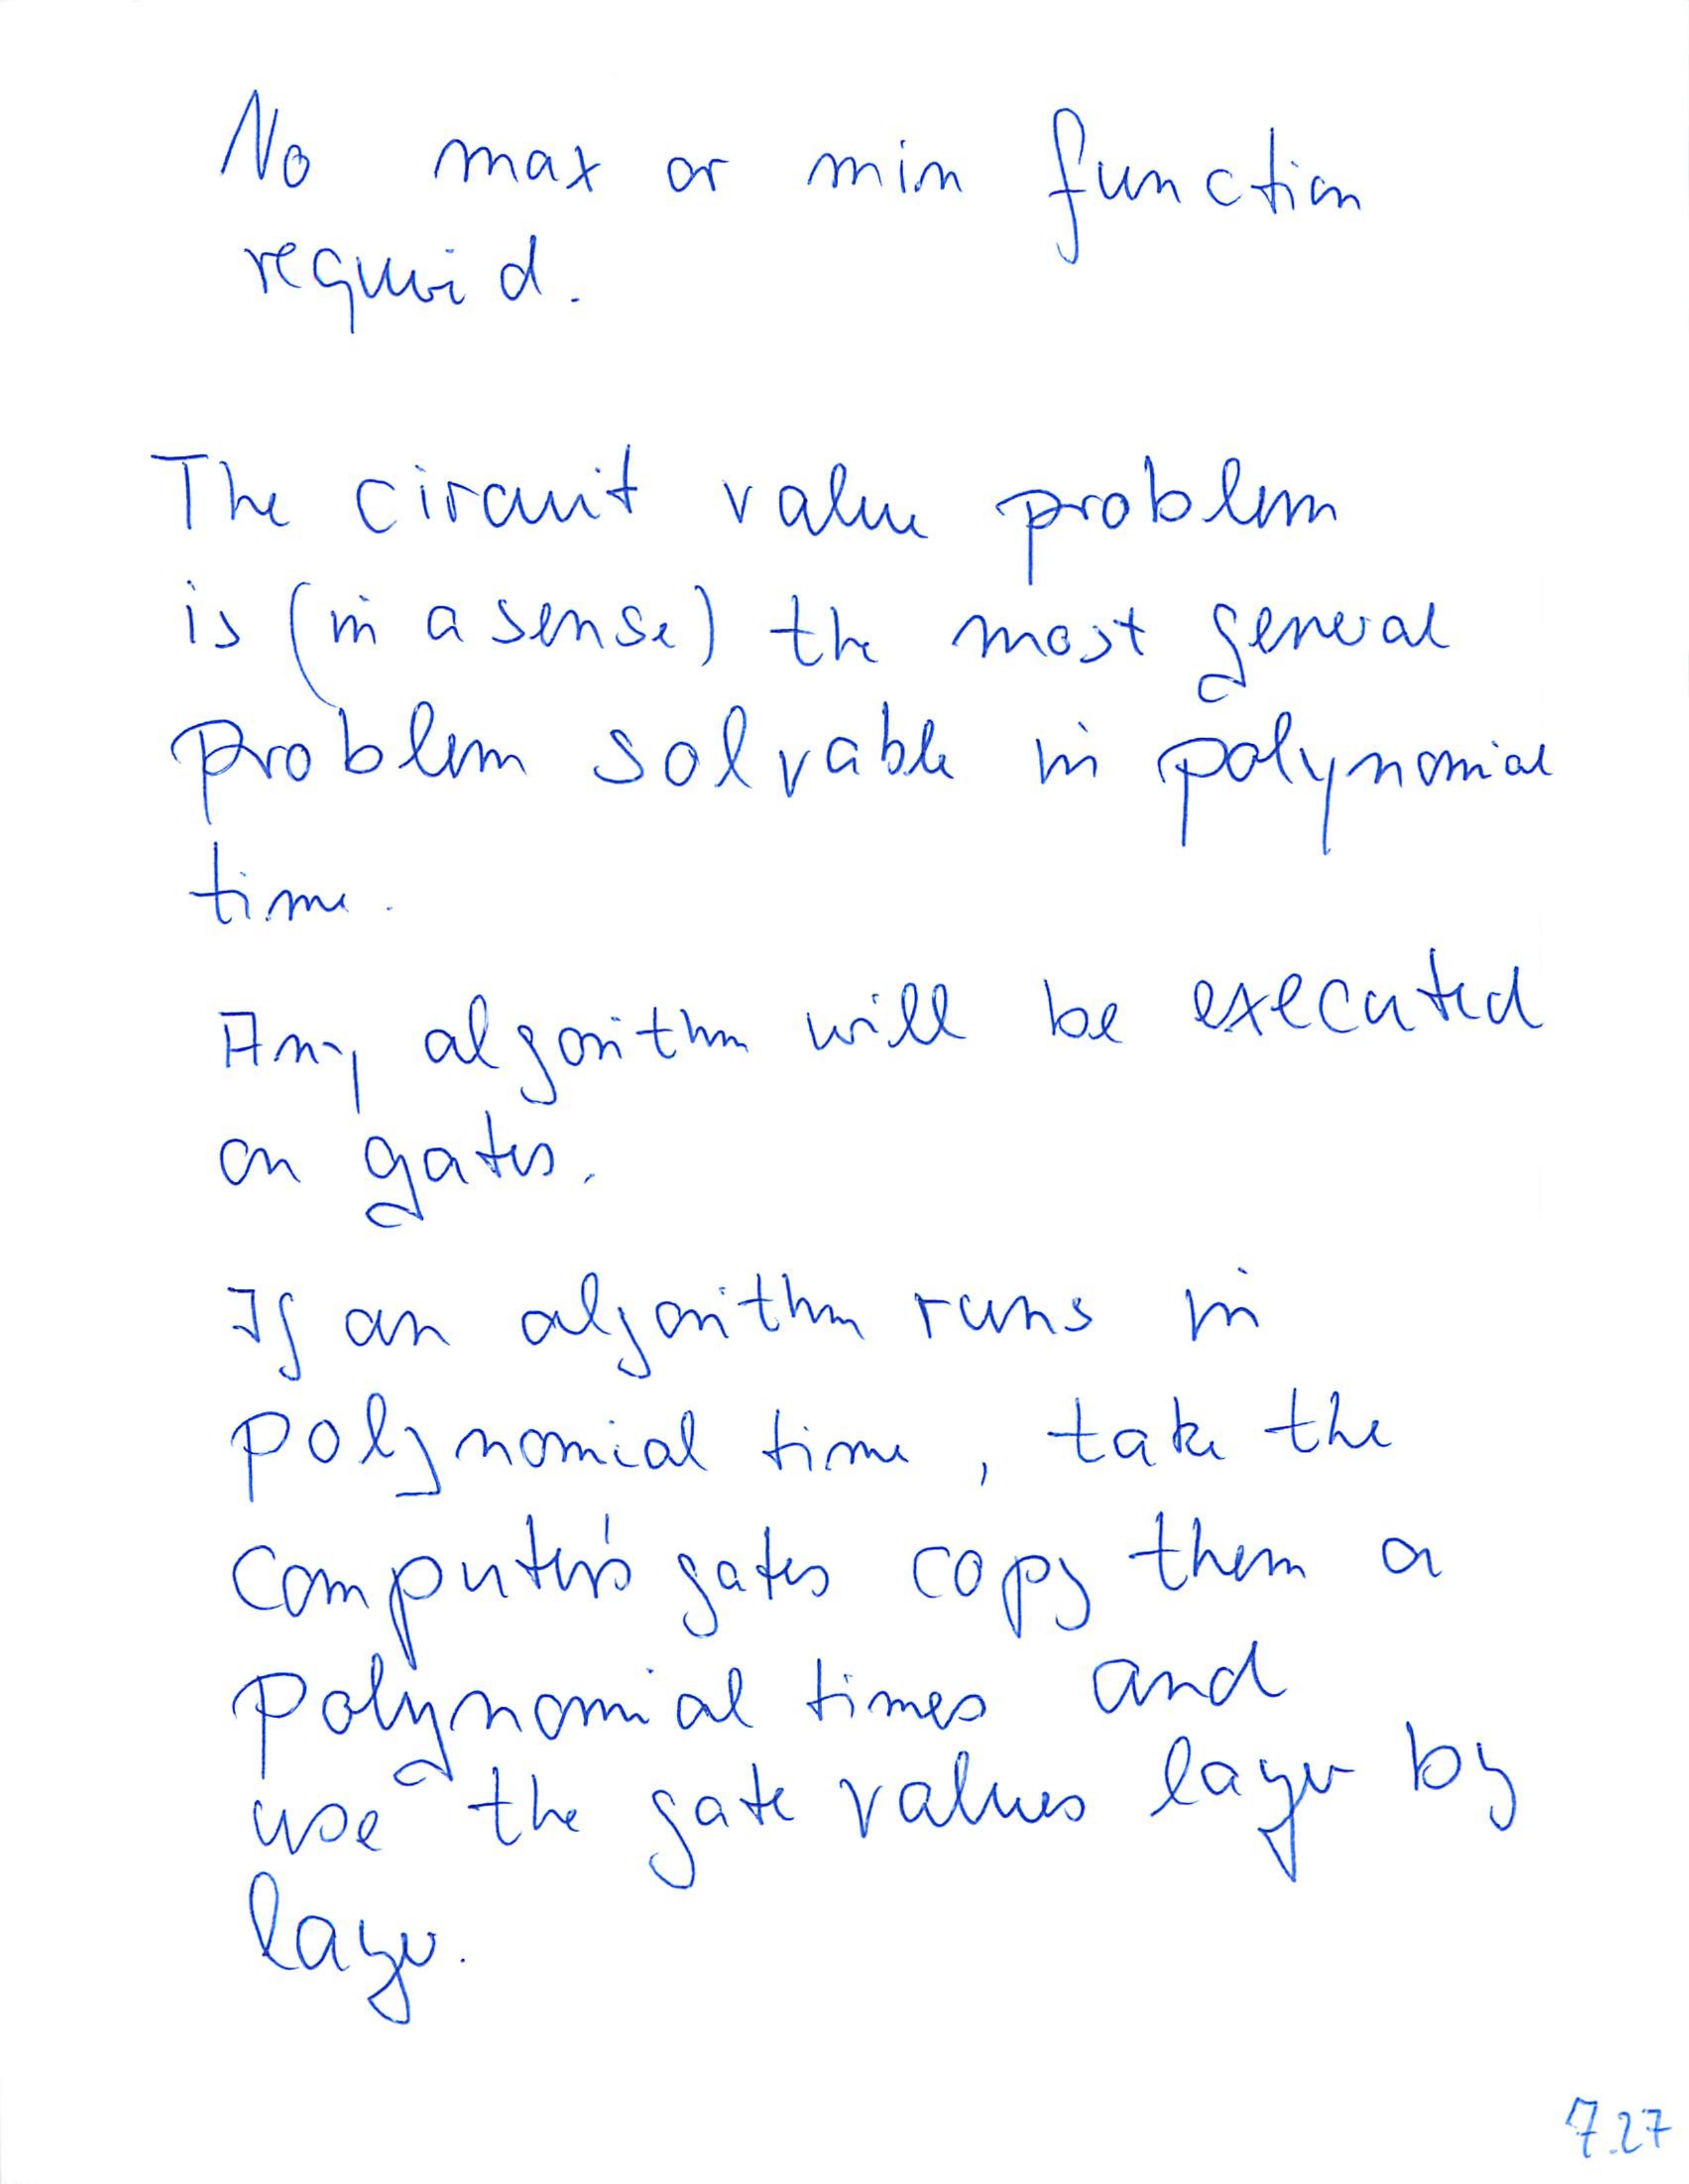 No max or min function
required.
The circuit value problem
is (in a sense) the most general
problem solvable in polynomial
time.
Any algorithm will be executed
on gates.
If an algorithm runs in
polynomial time, take the
computer's gates copy them a
polynomial times and
use the gate values layer by
layer.
7.27